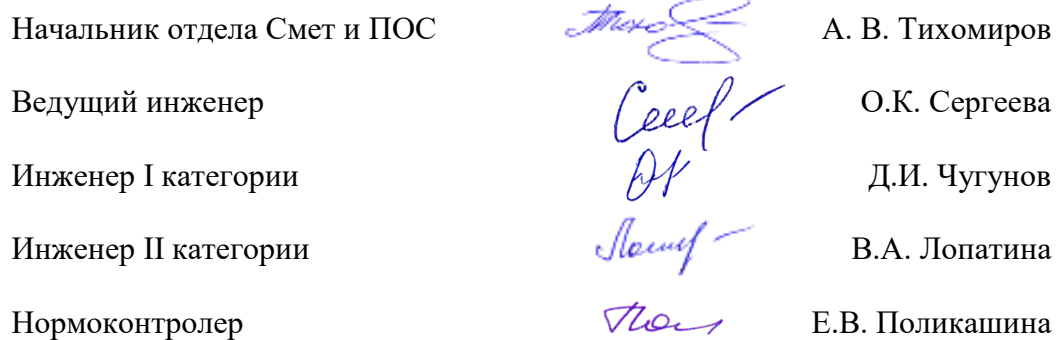 Начальник отдела Смет и ПОС А. В. Тихомиров
Ведущий инженер О.К. Сергеева
Инженер I категории Д.И. Чугунов
Инженер II категории В.А. Лопатина
Нормоконтролер Е.В. Поликашина